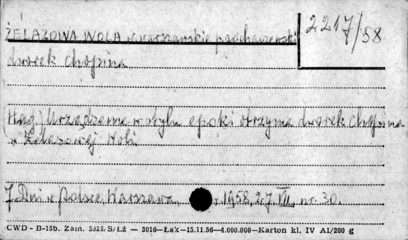 ŻELAZOWA WOLA warszawskie sochaczewski
2217/58
dworek Chopina
(Kag) Urządzenie w stylu epoki otrzyma dworek Chopina
w Żelazowej Woli.
7 Dni w Polsce, Warszawa, r. 1958, 27. VII, nr. 30.
CWD - B-15b. Zam. 5323. S/ŁŻ — 3016—Łak—15.11.56—4.000.000—Karton kl. IV A1/200 g